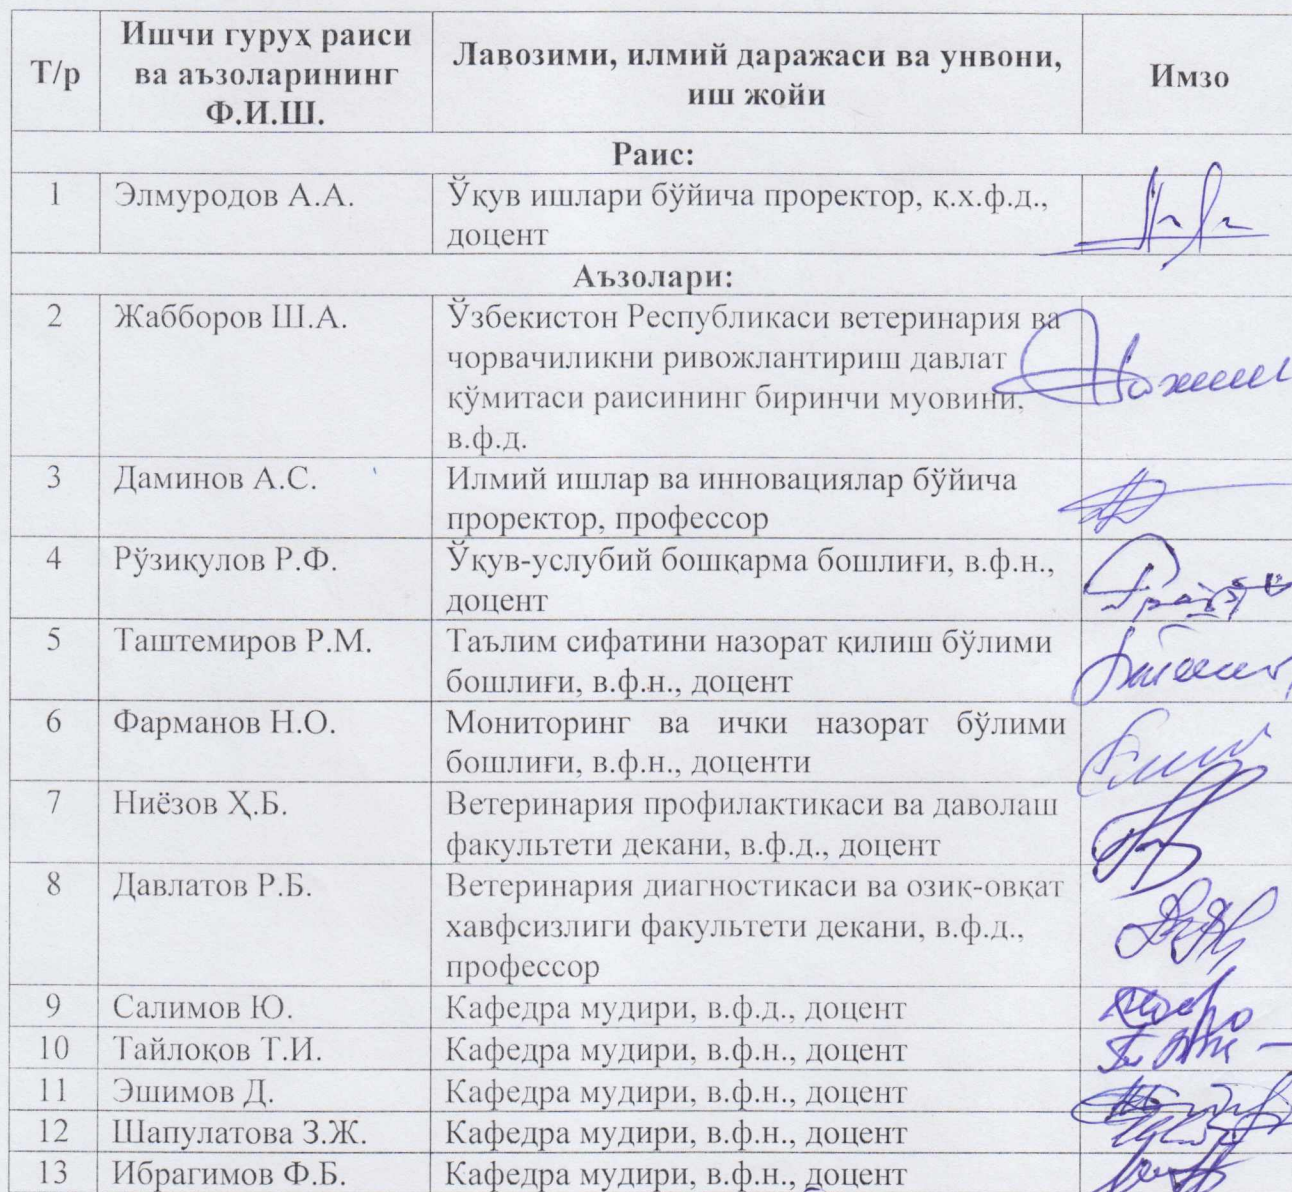 Т/р
Ишчи гуруҳ раиси
ва аъзоларининг
Ф.И.Ш.
Лавозими, илмий даражаси ва унвони,
иш жойи
Имзо
Раис:
1 Элмуродов А.А. Ўқув ишлари бўйича проректор, қ.х.ф.д.,
доцент
Аъзолари:
2 Жабборов Ш.А. Ўзбекистон Республикаси ветеринария ва
чорвачиликни ривожлантириш давлат
қўмитаси раисининг биринчи муовини,
в.ф.д.
3 Даминов А.С. Илмий ишлар ва инновациялар бўйича
проректор, профессор
4 Рўзиқулов Р.Ф. Ўқув-услубий бошқарма бошлиғи, в.ф.н.,
доцент
5 Таштемиров Р.М. Таълим сифатини назорат қилиш бўлими
бошлиғи, в.ф.н., доцент
6 Фарманов Н.О. Мониторинг ва ички назорат бўлими
бошлиғи, в.ф.н., доценти
7 Ниёзов Ҳ.Б. Ветеринария профилактикаси ва даволаш
факультети декани, в.ф.д., доцент
8 Давлатов Р.Б. Ветеринария диагностикаси ва озиқ-овқат
хавфсизлиги факультети декани, в.ф.д.,
профессор
9 Салимов Ю. Кафедра мудири, в.ф.д., доцент
10 Тайлоқов Т.И. Кафедра мудири, в.ф.н., доцент
11 Эшимов Д. Кафедра мудири, в.ф.н., доцент
12 Шапулатова З.Ж. Кафедра мудири, в.ф.н., доцент
13 Ибрагимов Ф.Б. Кафедра мудири, в.ф.н., доцент